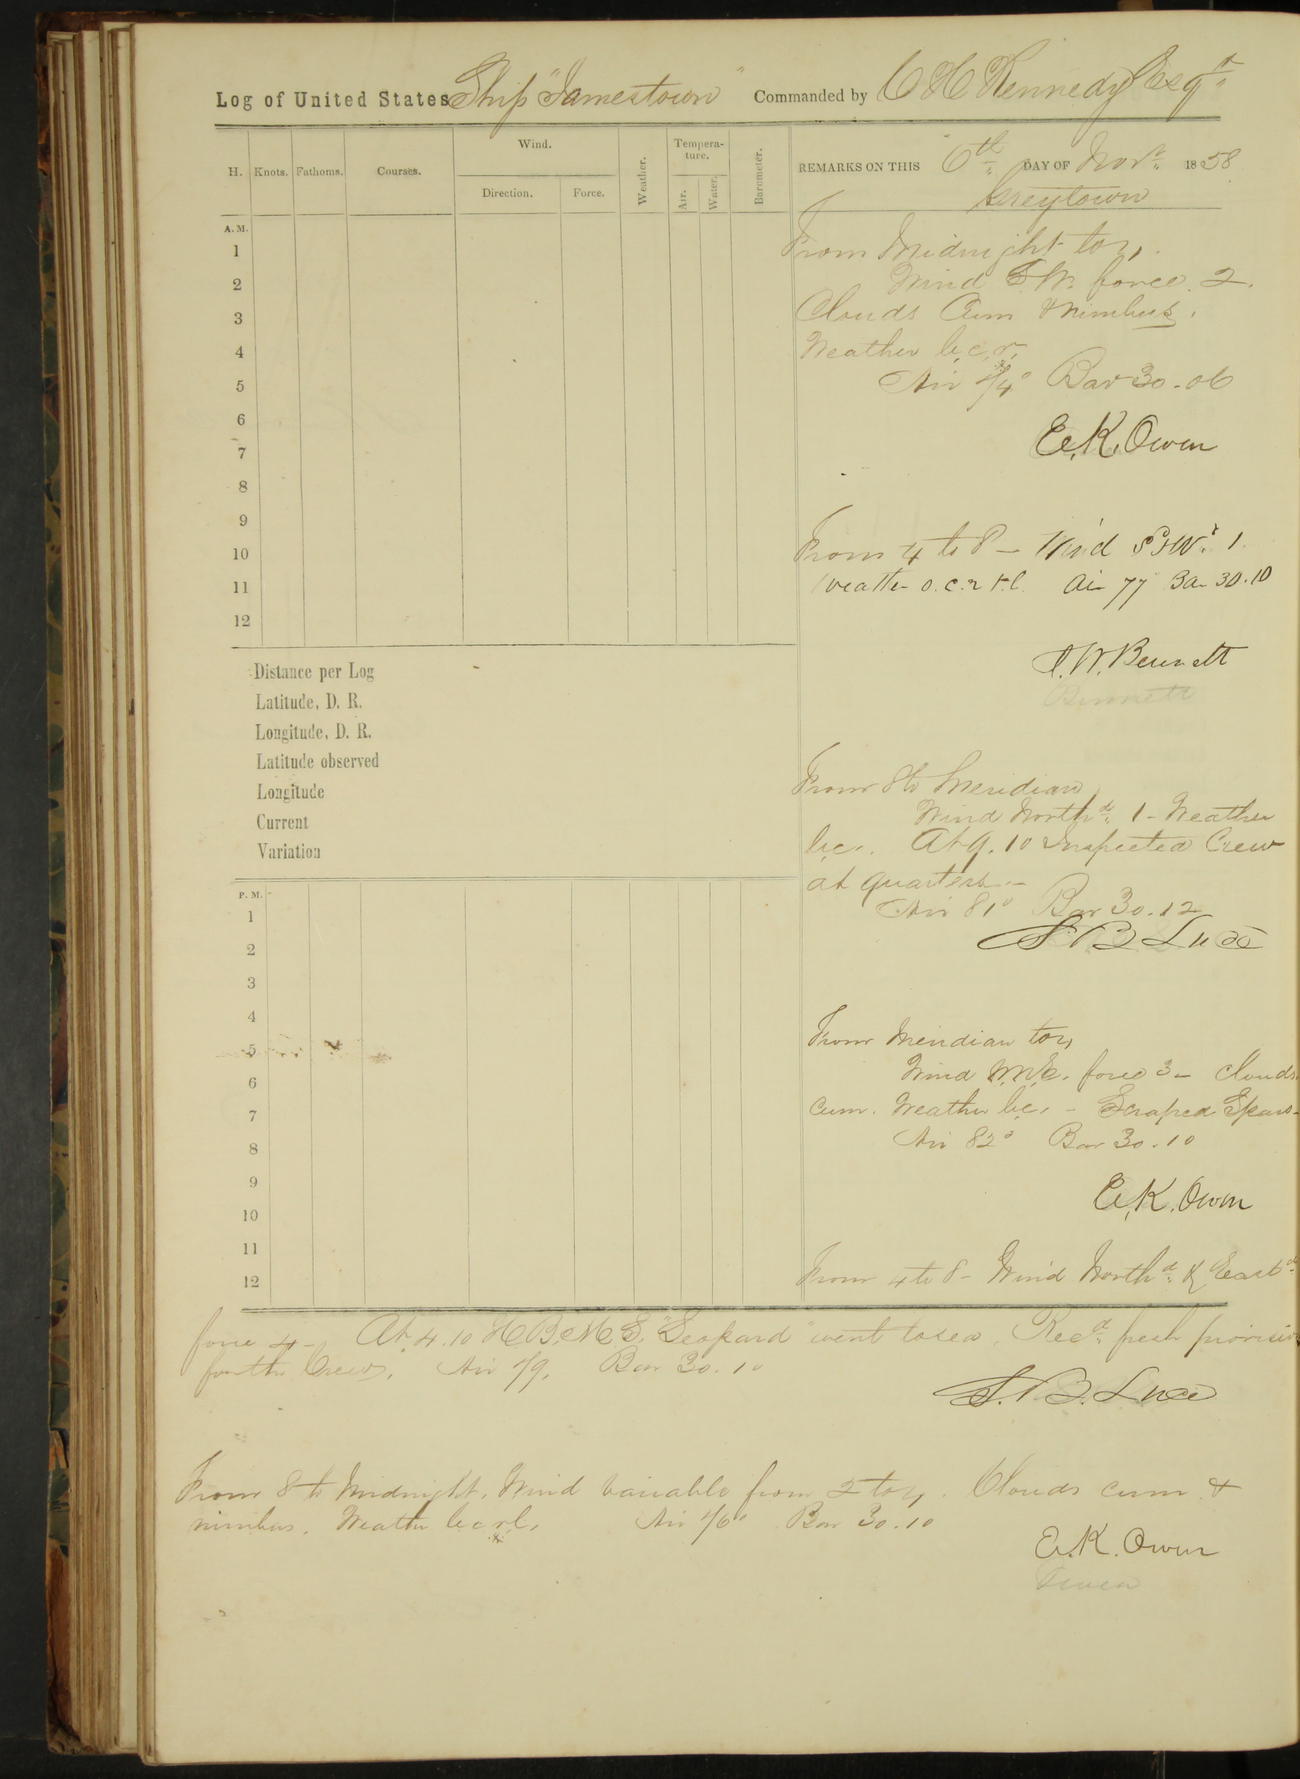 Log of United States Ship "Jamestown" Commanded by C H Kennedy Esqr
H. Knots. Fathoms. Courses. Wind. Direction. Force. Weather. Tempera-ture. Air. Water. Barometer.
REMARKS ON THIS 6th DAY OF Novr 1858
Greytown
A. M.
1
2
3
4
5
6
7
8
9
10
11
12
From Midnight to 4,
Wind S.W. force 2.
Clouds Cum & Nimbus.
Weather b.c.r,
Air 74° Bar 30.06
E. K. Owen
From 4 to 8 — Wind 1
Weather o.c.r & l. Air 77 Bar 30.10
Bennett
Bennett
Distance per Log
Latitude, D. R.
Longitude, D. R.
Latitude observed
Longitude
Current
Variation
From 8 to Meridian
Wind Northd. 1 - Weather
b.c. At 9.10 Inspected Crew
at quarters.—
Air 81° Bar 30.12
S. B. Luce
P. M.
1
2
3
4
5
6
7
8
9
10
11
12
From Meridian to 4,
Wind N.N.E. force 3 — Clouds
cum. Weather b.c. — Scraped Spars —
Air 82° Bar 30.10
E. K. Owen
From 4 to 8 — Wind Northd. & Eastd.
force 4 — At 4.10 H.B.M.S. "Leopard" went to sea. Recd. fresh
for the Crew. Air 79. Bar 30.10
S. B. Luce
From 8 to Midnight. Wind variable from 2 to 4. Clouds cum &
nimbus. Weather b.c.r.l. Air 76° Bar 30.10
E. K. Owen